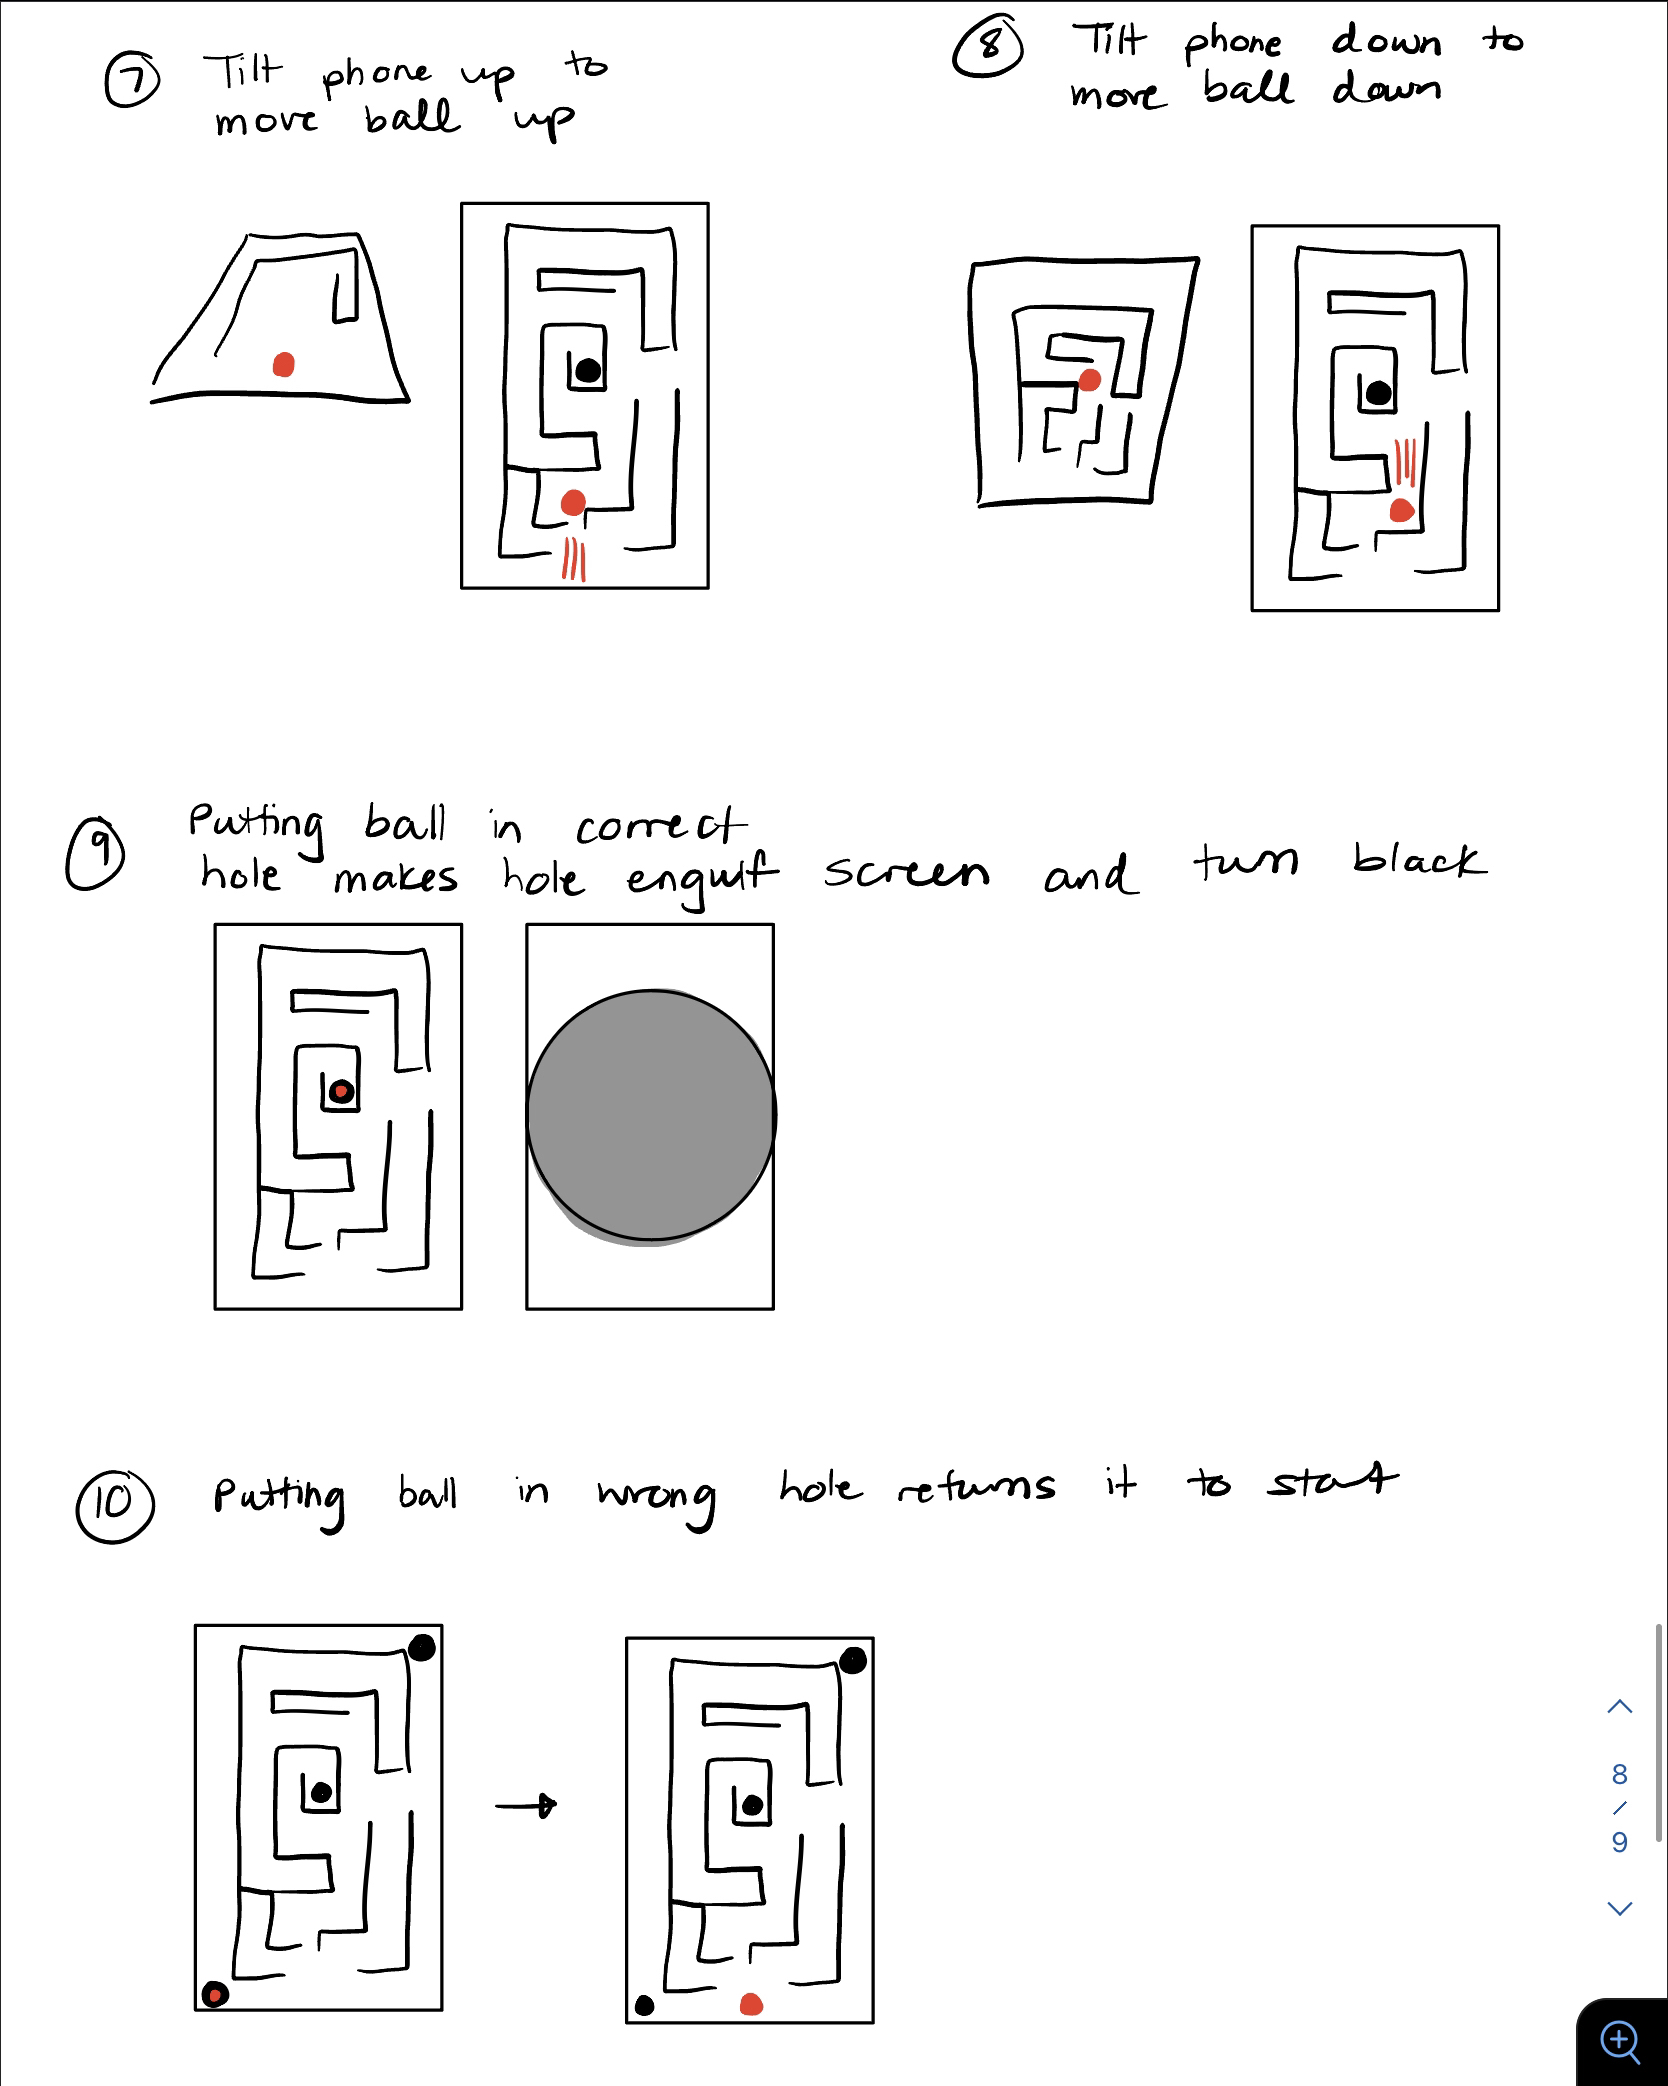 7 Tilt phone up to
move ball up
8 Tilt phone down to
move ball down
9 Putting ball in correct
hole makes hole engulf screen and turn black
10 Putting ball in wrong hole returns it to start
8
/
9